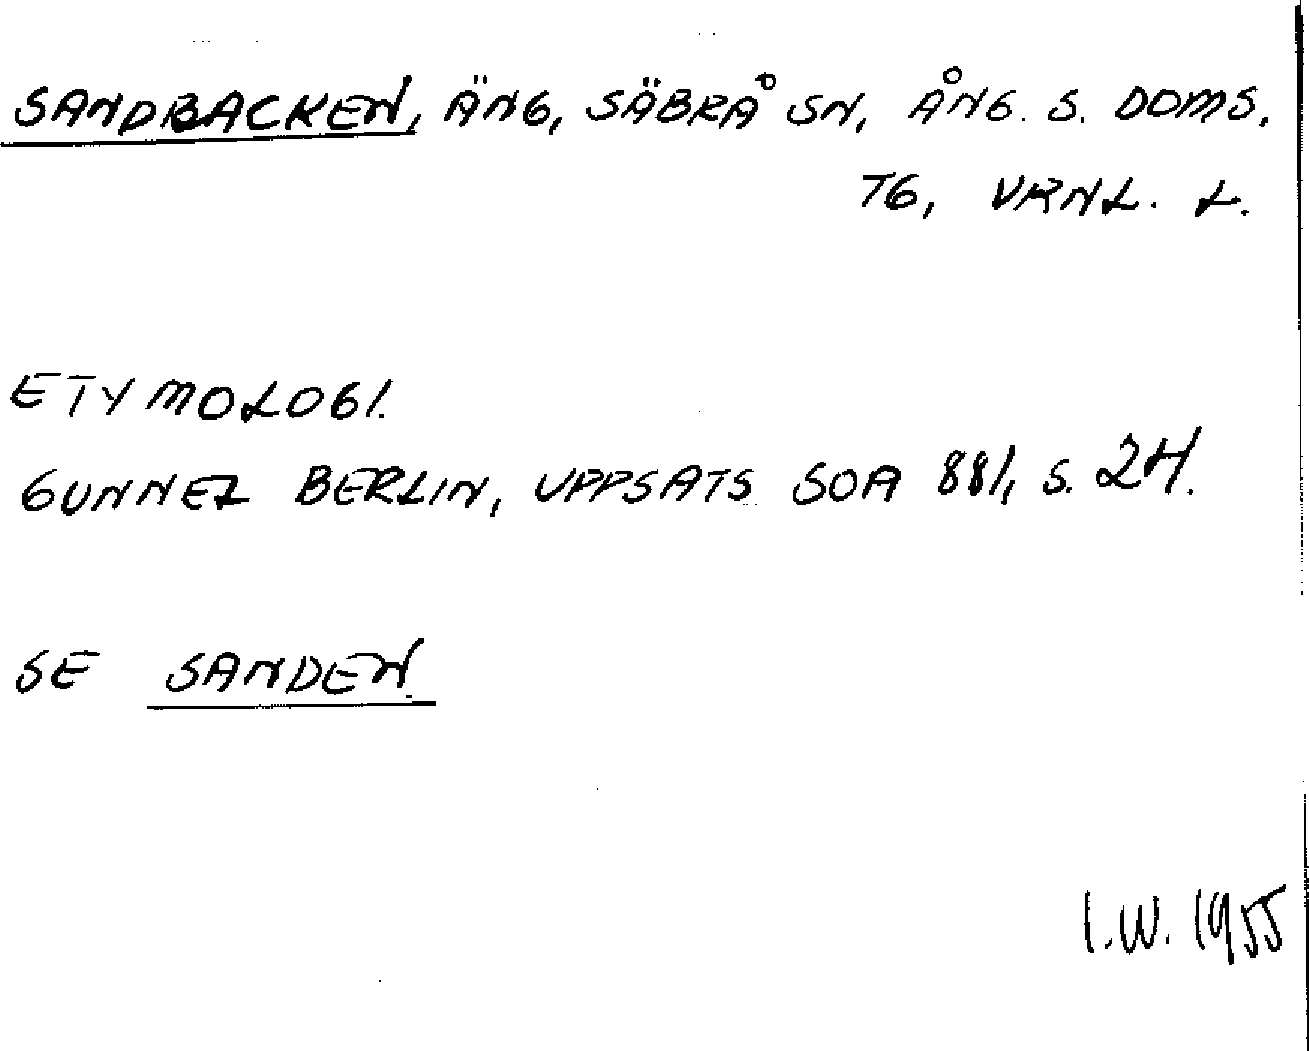 SANDBACKEN, ÄNG, SÄBRÅ SN, ÅNG. S. DOMS.
TG, VRNL. L.
ETYMOLOGI.
GUNNEL BERLIN, UPPSATS SOA 881, S. 24.
SE SANDEN.
I.W. 1955